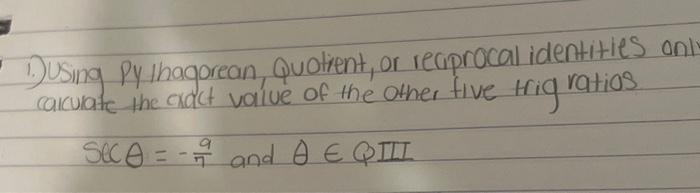 1.) Using Pythagorean, Quotient, or reciprocal identities only
calculate the exact value of the other five trig ratios
Sec θ = - 9/7 and θ ∈ QIII